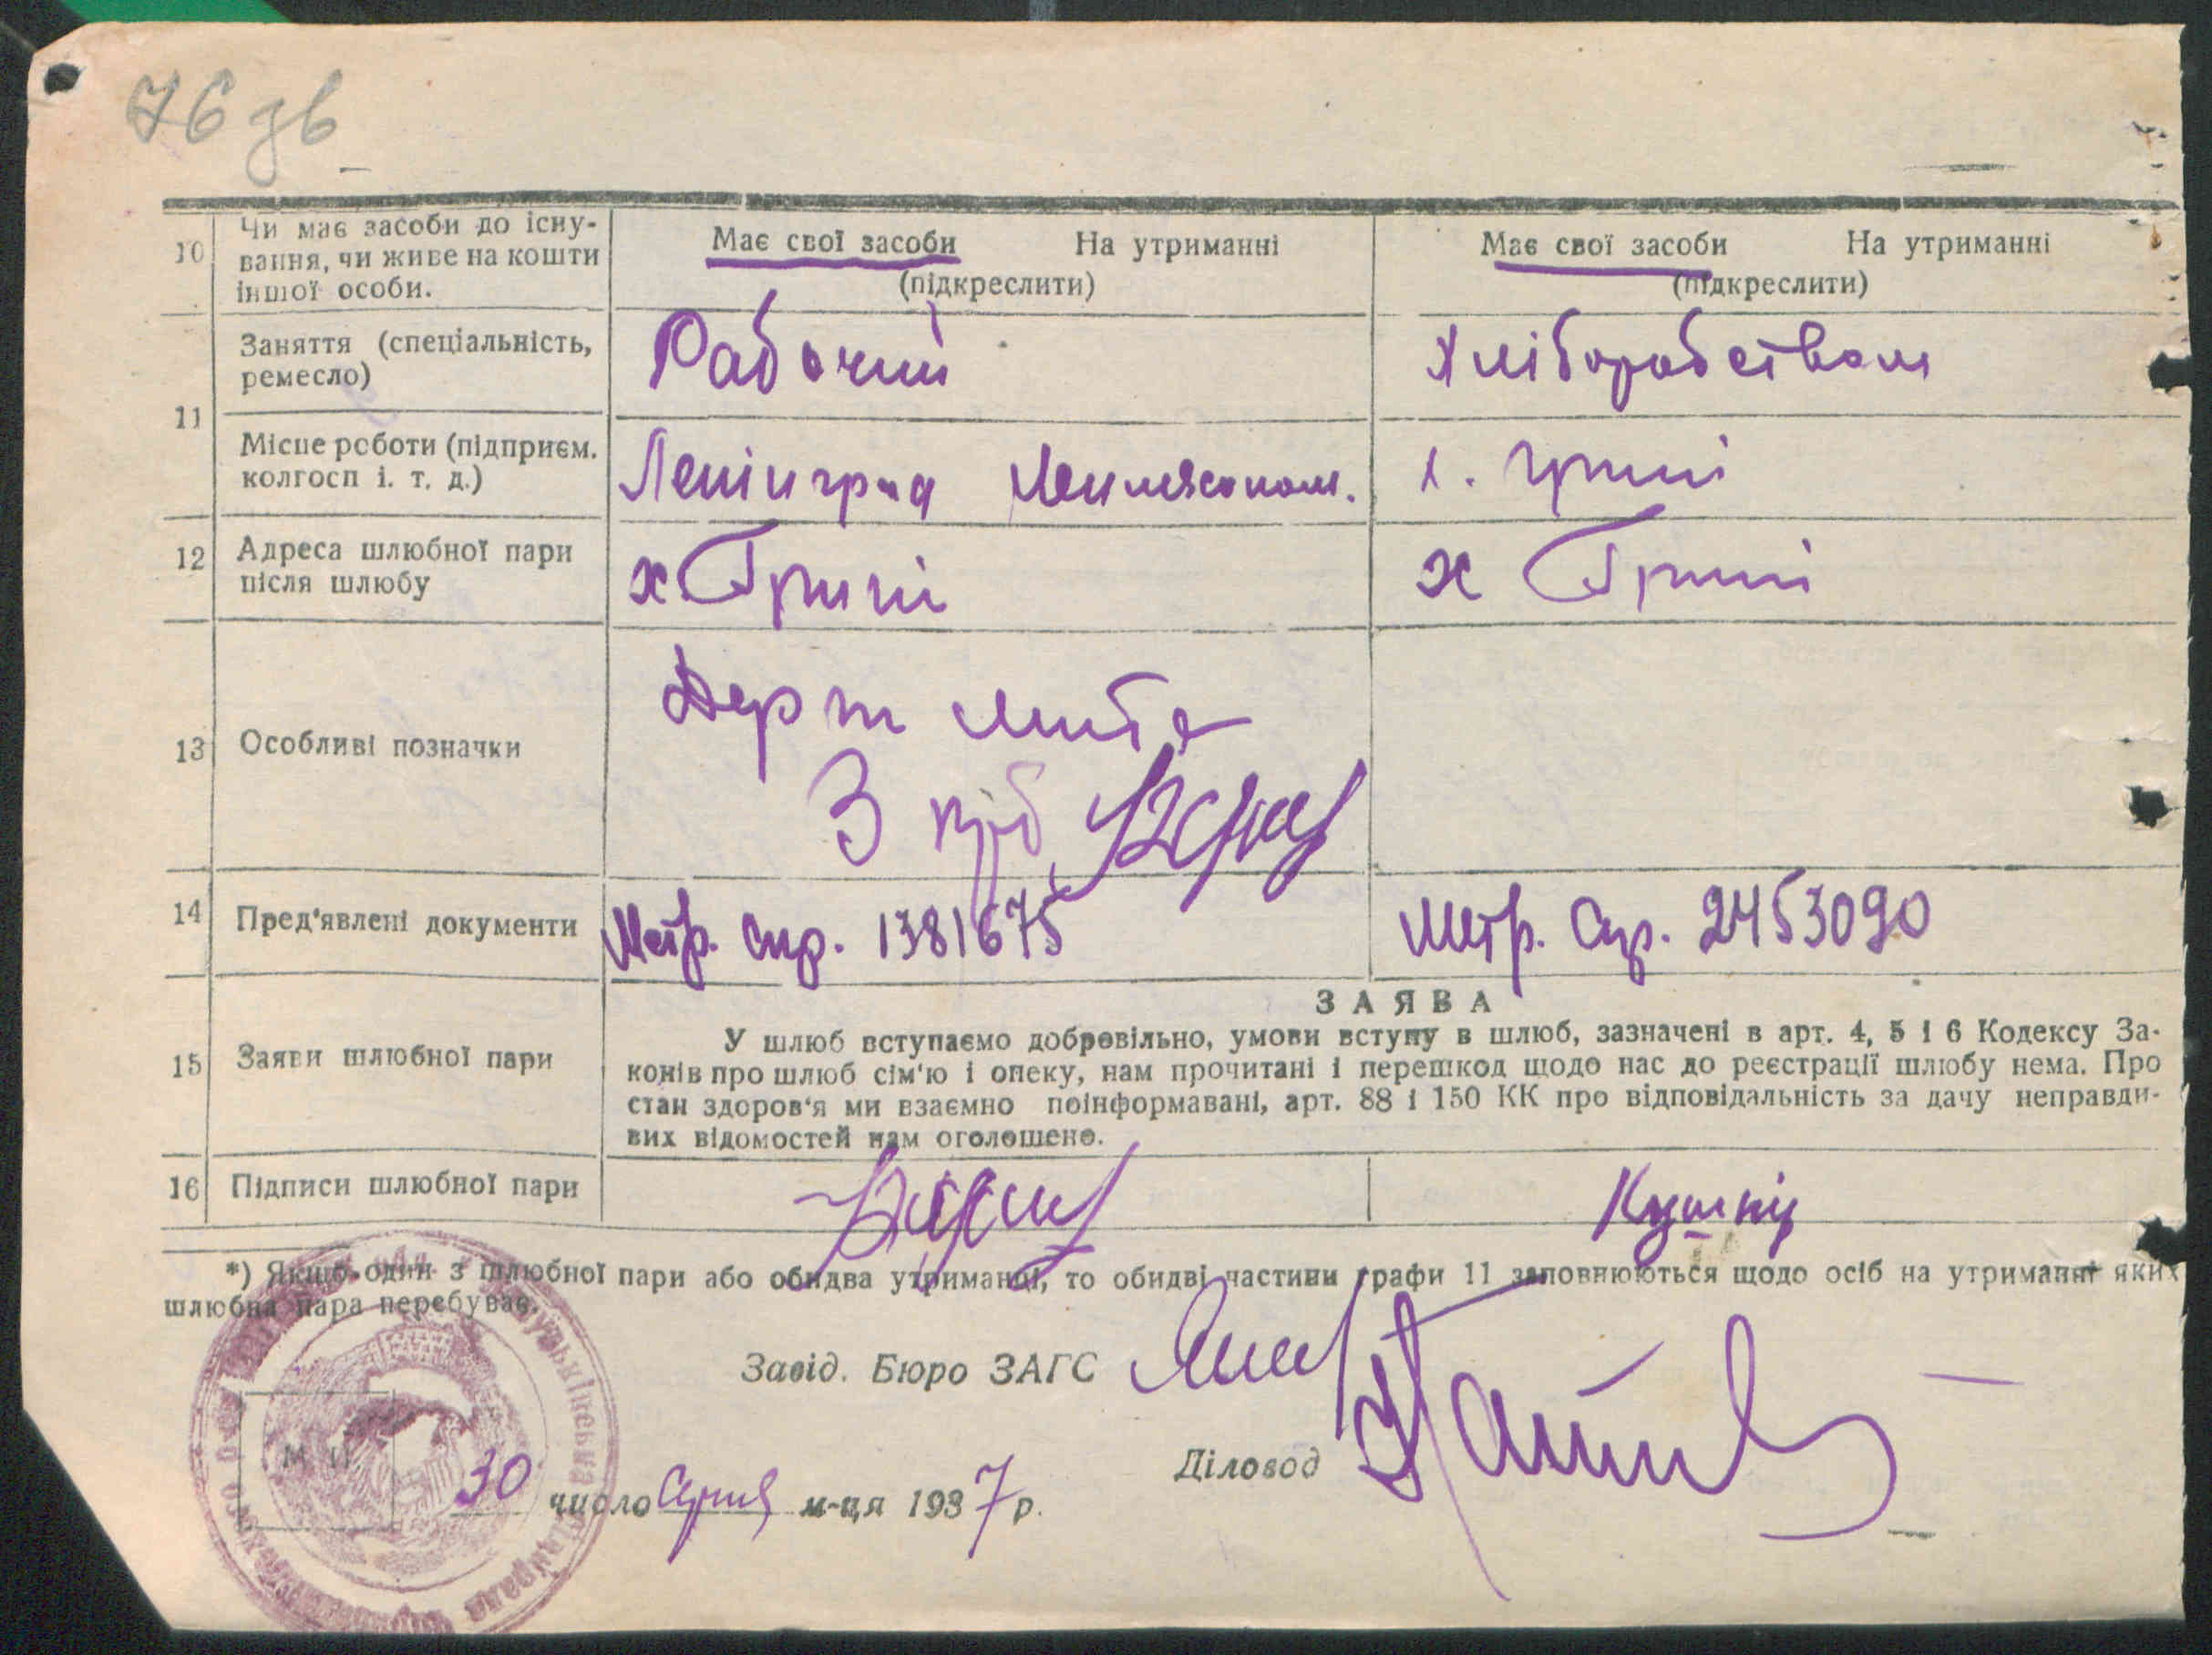 76 зв
10 Чи має засоби до існу-
вання, чи живе на кошти
іншої особи.
Має свої засоби На утриманні
(підкреслити)
Має свої засоби На утриманні
(підкреслити)
11 Заняття (спеціальність,
ремесло)
Рабочий
Хліборобством
Місце роботи (підприєм.
колгосп і. т. д.)
Ленінград
х. Грині
12 Адреса шлюбної пари
після шлюбу
х. Грині
х Грині
13 Особливі позначки
Держ мита
3 крб
14 Пред'явлені документи
Метр. спр. 1381675
Метр. Спр. 2453090
15 Заяви шлюбної пари
ЗАЯВА
У шлюб вступаємо добровільно, умови вступу в шлюб, зазначені в арт. 4, 5 і 6 Кодексу За-
конів про шлюб сім'ю і опеку, нам прочитані і перешкод щодо нас до реєстрації шлюбу нема. Про
стан здоров'я ми взаємно поінформавані, арт. 88 і 150 КК про відповідальність за дачу неправди-
вих відомостей нам оголошено.
16 Підписи шлюбної пари
Кушнір
*) Якщо один з шлюбної пари або обидва утриманці, то обидві частини графи 11 заповнюються щодо осіб на утриманні яких
шлюбна пара перебуває.
Завід. Бюро ЗАГС
Діловод
М. П.
30 число Серпня м-ця 1937 р.